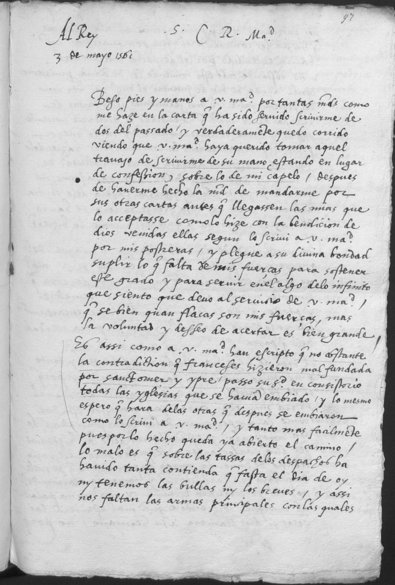 97
Al Rey
S. C. R. Ma.d
3 de mayo 1561
Beso pies y manos a v. ma.d por tantas mds como
me haze en la carta q ha sido servido scrivirme de
dos del passado / y verdaderamēte quedo corrido
viendo que v. ma.d haya querido tomar aquel
travajo de scrivirme de su mano estando en lugar
de confession, sobre lo de mi capelo / despues
de haverme hecho la md de mandarme por
sus otras cartas antes q llegassen las mias que
lo acceptasse como lo hize con la bendicion de
dios venidas ellas segun lo scrivi a v. ma.d
por mis postreras / y plegue a su divina bondad
suplir lo q falta de mis fuerças para sostener
este grado y para servir en el algo delo infinito
que siento que devo al servicio de v. ma.d /
q se bien quan flacas son mis fuerças, mas
la voluntad y desseo de acertar es bien grande /
Es assi como a v. ma.d han escripto q no obstante
la contradiction q franceses hizieron mal fundada
por sanctomer y ypre / passo su s.d en consistorio
todas las yglesias que se havia embiado / y lo mesmo
espero q hara delas otras q despues se embiaron
como lo scrivi a v. ma.d / y tanto mas facilmēte
pues por lo hecho queda ya abierto el camino /
lo malo es q sobre las tassas delos despachos ha
havido tanta contienda q fasta el dia de oy
ny tenemos las bullas ny los breves / y assi
nos faltan las armas principales con las quales